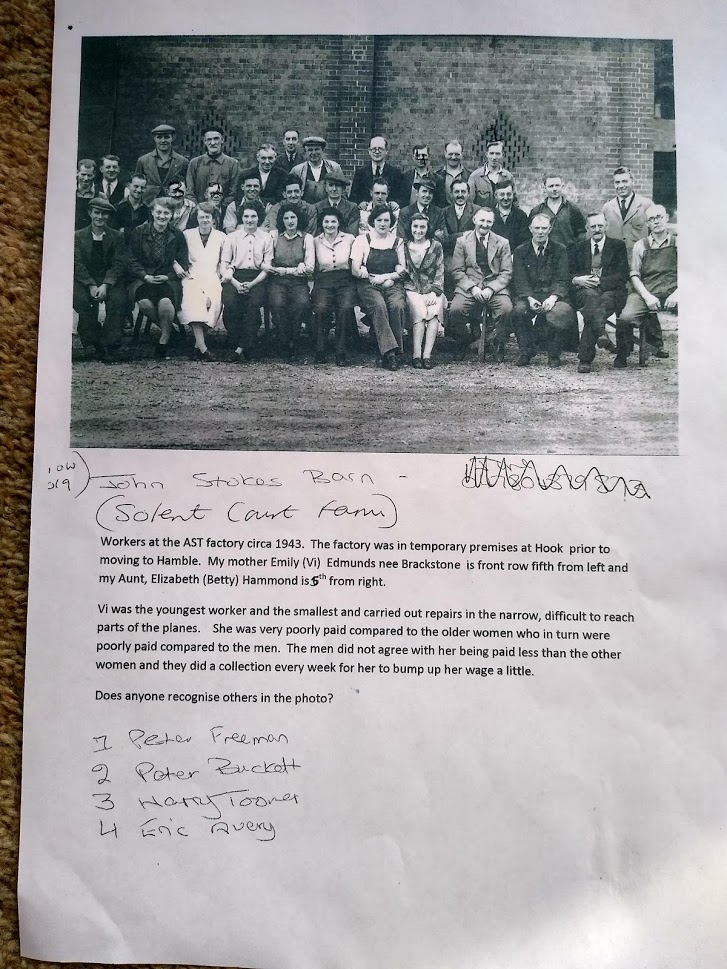 John Stokes Barn -
(Solent Court Farm)
Workers at the AST factory circa 1943. The factory was in temporary premises at Hook prior to
moving to Hamble. My mother Emily (Vi) Edmunds nee Brackstone is front row fifth from left and
my Aunt, Elizabeth (Betty) Hammond is 5th from right.
Vi was the youngest worker and the smallest and carried out repairs in the narrow, difficult to reach
parts of the planes. She was very poorly paid compared to the older women who in turn were
poorly paid compared to the men. The men did not agree with her being paid less than the other
women and they did a collection every week for her to bump up her wage a little.
Does anyone recognise others in the photo?
1 Peter Freeman
2 Peter Buckett
3 Harry Toomer
4 Eric Avery